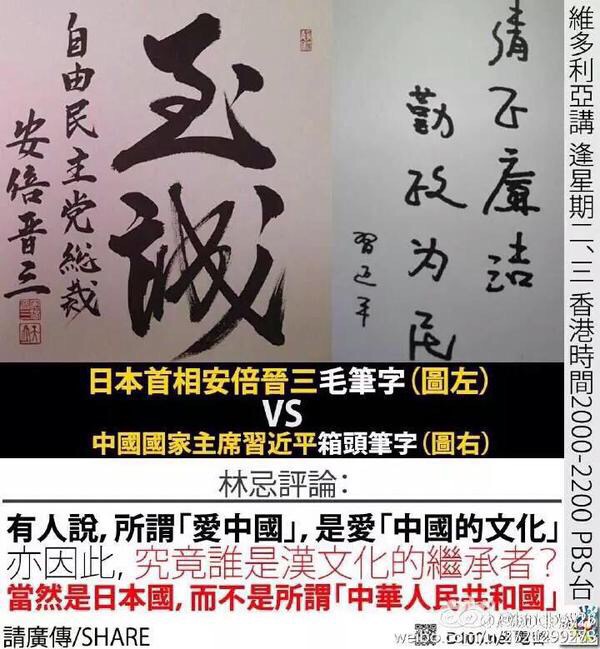 至誠
自由民主党総裁
安倍晋三
清正廉洁
勤政为民
習近平
維多利亞講 逢星期二、三 香港時間2000-2200 PBS台
日本首相安倍晉三毛筆字(圖左)
VS
中國國家主席習近平箱頭筆字(圖右)
林忌評論:
有人說,所謂「愛中國」,是愛「中國的文化」
亦因此,究竟誰是漢文化的繼承者?
當然是日本國,而不是所謂「中華人民共和國」
請廣傳/SHARE
weibo.com/